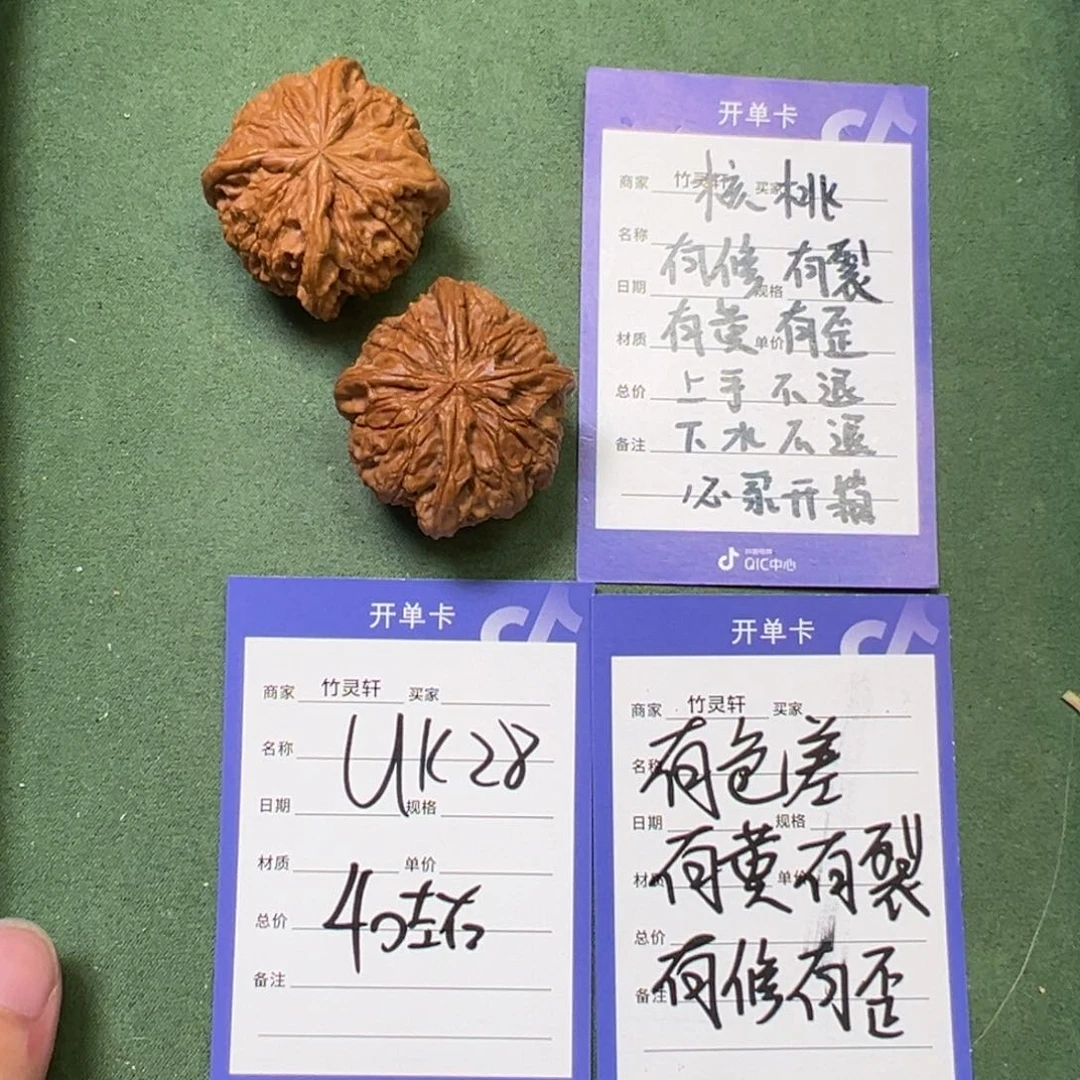 开单卡
商家 竹灵轩 买家
核桃
名称
有修 有裂
日期 规格
材质 有黄 单价 有歪
总价 上手 不退
备注 下水 不退
必录开箱
抖音电商
QIC中心
开单卡
商家 竹灵轩 买家
名称 UK28
日期 规格
材质 单价
总价 40左右
备注
开单卡
商家 竹灵轩 买家
名称 有色差
日期 规格
材质 有黄 单价 有裂
总价
备注 有修有歪